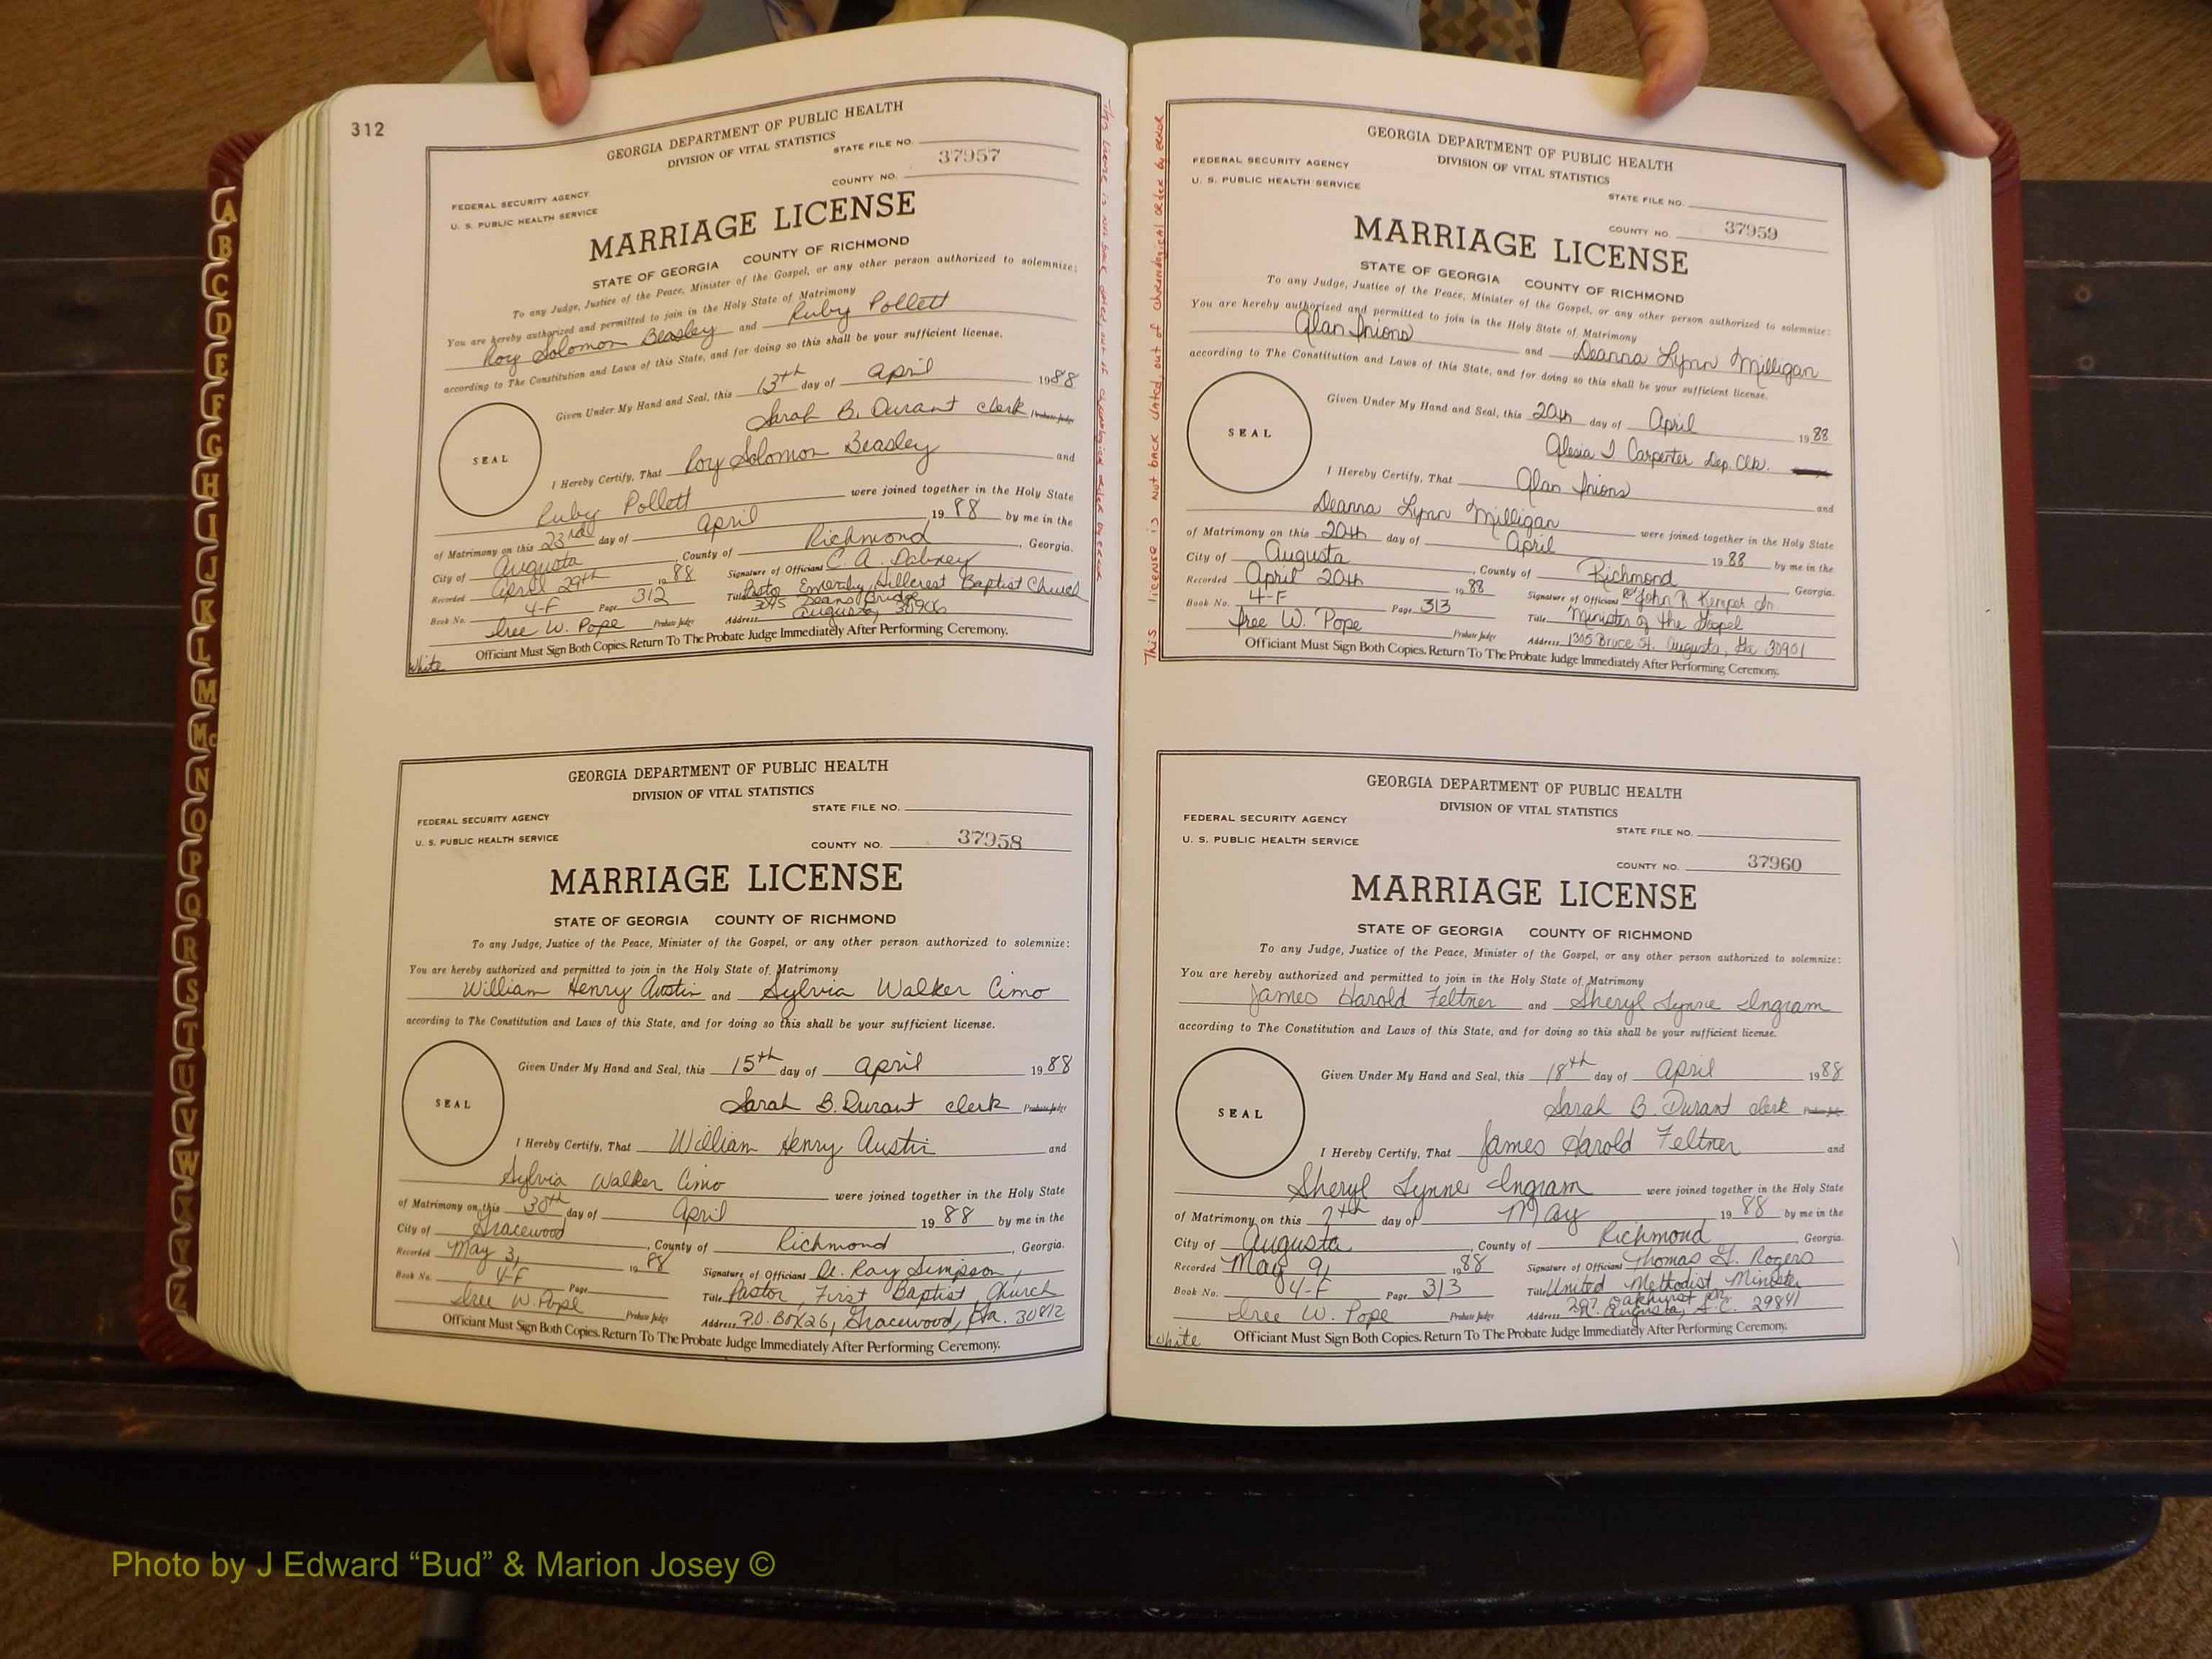 312
GEORGIA DEPARTMENT OF PUBLIC HEALTH
DIVISION OF VITAL STATISTICS
STATE FILE NO.
37957
COUNTY NO.
FEDERAL SECURITY AGENCY
U. S. PUBLIC HEALTH SERVICE
MARRIAGE LICENSE
STATE OF GEORGIA COUNTY OF RICHMOND
To any Judge, Justice of the Peace, Minister of the Gospel, or any other person authorized to solemnize:
You are hereby authorized and permitted to join in the Holy State of Matrimony
Roy Solomon Beasley and Ruby Pollett
according to The Constitution and Laws of this State, and for doing so this shall be your sufficient license.
Given Under My Hand and Seal, this 13th day of April 1988
Sarah B. Durant clerk Probate Judge
SEAL
I Hereby Certify, That Roy Solomon Beasley and
Ruby Pollett were joined together in the Holy State
of Matrimony on this 23rd day of April 1988 by me in the
City of Augusta, County of Richmond, Georgia.
Recorded April 29th 1988 Signature of Officiant C. A. Dabney
Book No. 4-F Page 312 Title Pastor Hillcrest Baptist Church
3045 Deans Bridge
Iree W. Pope Probate Judge Address Augusta, 30906
Officiant Must Sign Both Copies. Return To The Probate Judge Immediately After Performing Ceremony.
White
This license is not back dated, out of chronological order by error
GEORGIA DEPARTMENT OF PUBLIC HEALTH
DIVISION OF VITAL STATISTICS
STATE FILE NO.
FEDERAL SECURITY AGENCY
U. S. PUBLIC HEALTH SERVICE
COUNTY NO. 37958
MARRIAGE LICENSE
STATE OF GEORGIA COUNTY OF RICHMOND
To any Judge, Justice of the Peace, Minister of the Gospel, or any other person authorized to solemnize:
You are hereby authorized and permitted to join in the Holy State of Matrimony
William Henry Austin and Sylvia Walker Cimo
according to The Constitution and Laws of this State, and for doing so this shall be your sufficient license.
Given Under My Hand and Seal, this 15th day of April 1988
Sarah B. Durant clerk Probate Judge
SEAL
I Hereby Certify, That William Henry Austin and
Sylvia Walker Cimo were joined together in the Holy State
of Matrimony on this 30th day of April 1988 by me in the
City of Gracewood, County of Richmond, Georgia.
Recorded May 3, 1988 Signature of Officiant Ray Simpson
Book No. 4-F Page Title Pastor, First Baptist Church
Iree W. Pope Probate Judge Address P.O. Box 26, Gracewood, Ga. 30812
Officiant Must Sign Both Copies. Return To The Probate Judge Immediately After Performing Ceremony.
This license is not back dated, out of chronological order by error
GEORGIA DEPARTMENT OF PUBLIC HEALTH
DIVISION OF VITAL STATISTICS
FEDERAL SECURITY AGENCY
U. S. PUBLIC HEALTH SERVICE
STATE FILE NO.
COUNTY NO. 37959
MARRIAGE LICENSE
STATE OF GEORGIA COUNTY OF RICHMOND
To any Judge, Justice of the Peace, Minister of the Gospel, or any other person authorized to solemnize:
You are hereby authorized and permitted to join in the Holy State of Matrimony
Alan Inions and Deanna Lynn Milligan
according to The Constitution and Laws of this State, and for doing so this shall be your sufficient license.
Given Under My Hand and Seal, this 20th day of April 1988
Alesia I Carpenter Dep. Clk.
SEAL
I Hereby Certify, That Alan Inions and
Deanna Lynn Milligan were joined together in the Holy State
of Matrimony on this 20th day of April 1988 by me in the
City of Augusta, County of Richmond Georgia.
Recorded April 20th 1988 Signature of Officiant John R Kemper Jr.
Book No. 4-F Page 313 Title Minister of the Gospel
Iree W. Pope Probate Judge Address 1305 Bruce St. Augusta, Ga 30901
Officiant Must Sign Both Copies. Return To The Probate Judge Immediately After Performing Ceremony.
GEORGIA DEPARTMENT OF PUBLIC HEALTH
DIVISION OF VITAL STATISTICS
FEDERAL SECURITY AGENCY
STATE FILE NO.
U. S. PUBLIC HEALTH SERVICE
COUNTY NO. 37960
MARRIAGE LICENSE
STATE OF GEORGIA COUNTY OF RICHMOND
To any Judge, Justice of the Peace, Minister of the Gospel, or any other person authorized to solemnize:
You are hereby authorized and permitted to join in the Holy State of Matrimony
James Harold Feltner and Sheryl Lynne Ingram
according to The Constitution and Laws of this State, and for doing so this shall be your sufficient license.
Given Under My Hand and Seal, this 18th day of April 1988
Sarah B. Durant clerk Probate Judge
SEAL
I Hereby Certify, That James Harold Feltner and
Sheryl Lynne Ingram were joined together in the Holy State
of Matrimony on this 7th day of May 1988 by me in the
City of Augusta, County of Richmond Georgia.
Recorded May 9, 1988 Signature of Officiant Thomas G. Rogers
Book No. 04-F Page 313 Title United Methodist Minister
297 Oakhurst Dr.
Iree W. Pope Probate Judge Address N. Augusta, S.C. 29841
Officiant Must Sign Both Copies. Return To The Probate Judge Immediately After Performing Ceremony.
White
A
B
C
D
E
F
G
H
I
J
K
L
M
Mc
N
O
P
Q
R
S
T
U
V
W
X
Y
Z
Photo by J Edward “Bud” & Marion Josey ©